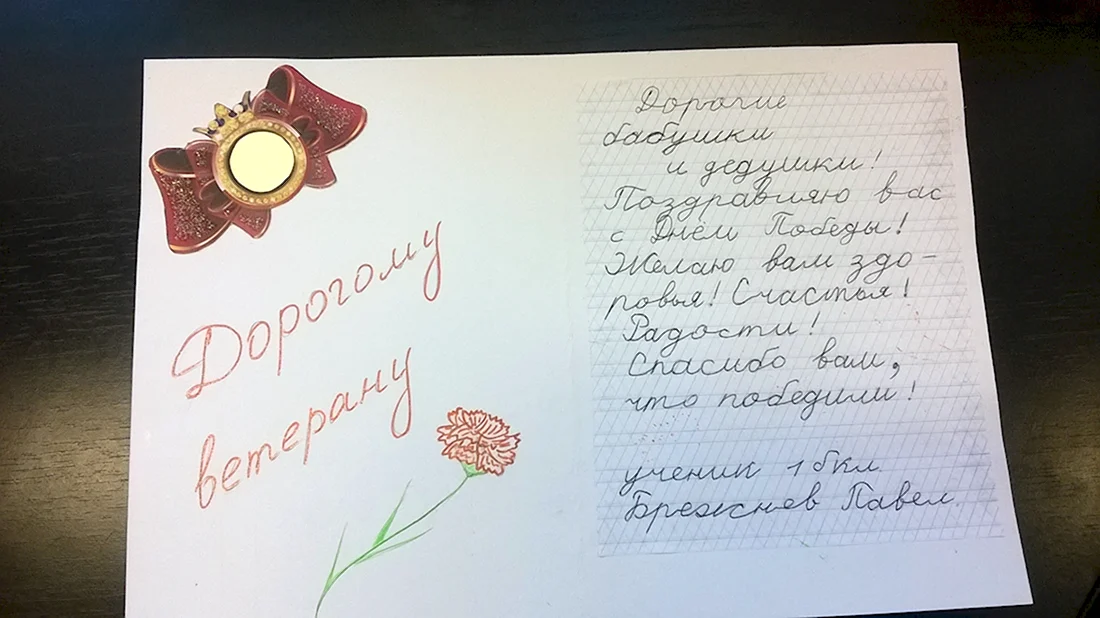 Дорогому
ветерану
Дорогие
бабушки
и дедушки!
Поздравляю вас
с Днём Победы!
Желаю вам здо-
ровья! Счастья!
Радости!
Спасибо вам,
что победили!
ученик 1б кл.
Брежнев Павел.